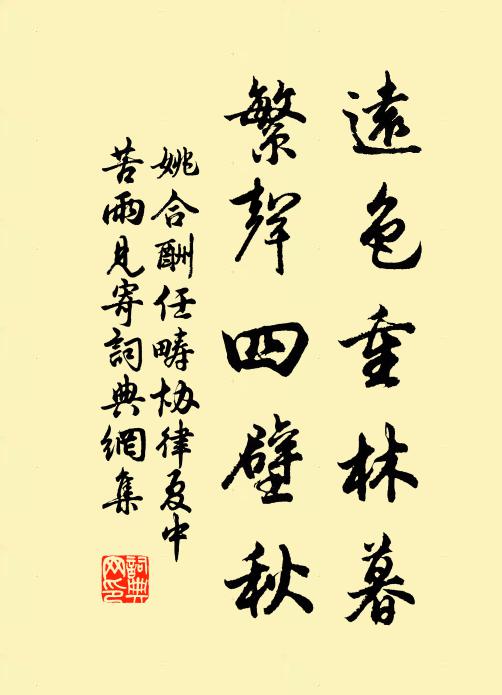 遠色重林暮
繁聲四壁秋
姚合酬任疇協律夏中
苦雨見寄詞典網集
詞典
网印